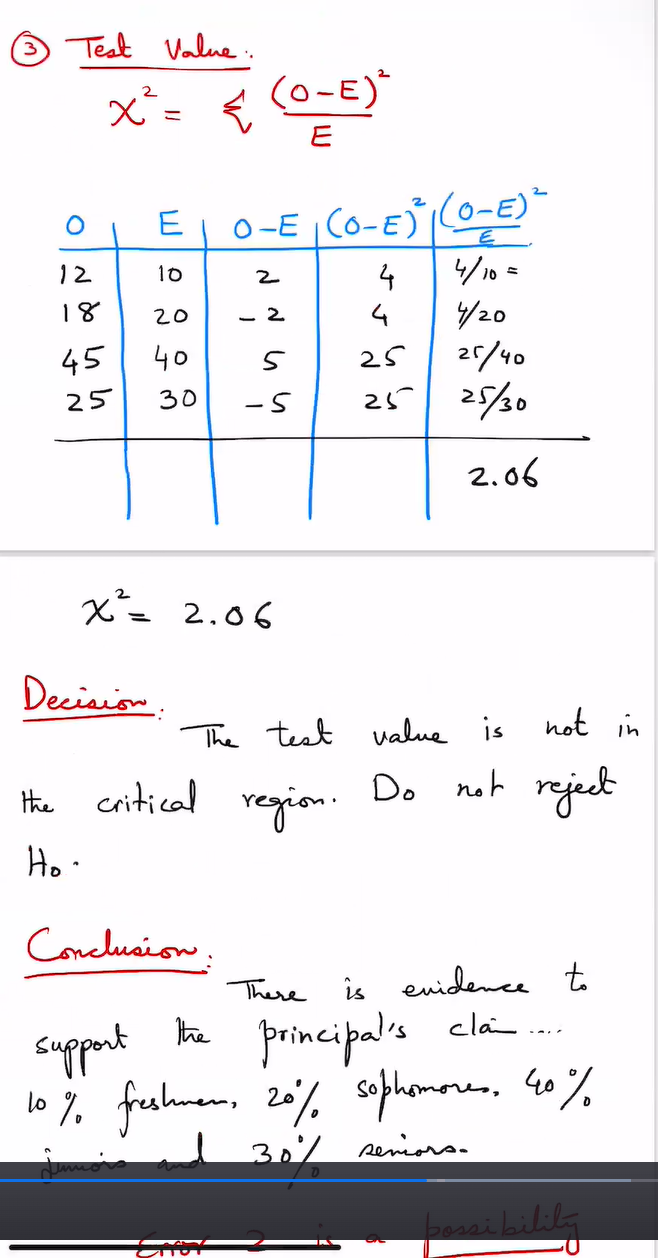 ③ Test Value:
χ² = Σ (O-E)²/E
O | E | O-E | (O-E)² | (O-E)²/E
12 | 10 | 2 | 4 | 4/10 =
18 | 20 | -2 | 4 | 4/20
45 | 40 | 5 | 25 | 25/40
25 | 30 | -5 | 25 | 25/30
2.06
χ² = 2.06
Decision:
The test value is not in
the critical region. Do not reject
H₀.
Conclusion:
There is evidence to
support the principal's clai ....
10% freshmen, 20% sophomores, 40%
juniors and 30% seniors.
Error 2 is a possibility